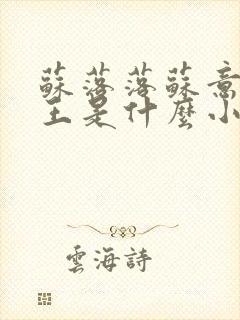 蘇落落蘇意
主是什麼小
雲海詩